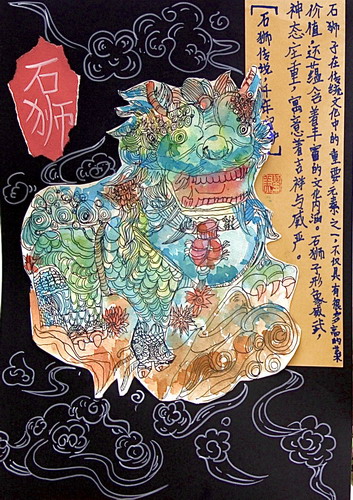 石狮
石狮子在传统文化中的重要元素之一，不仅具有很高的艺术
价值，还蕴含着丰富的文化内涵。石狮子形象威武，
神态庄重，寓意着吉祥与威严。
【石狮传统，千年】